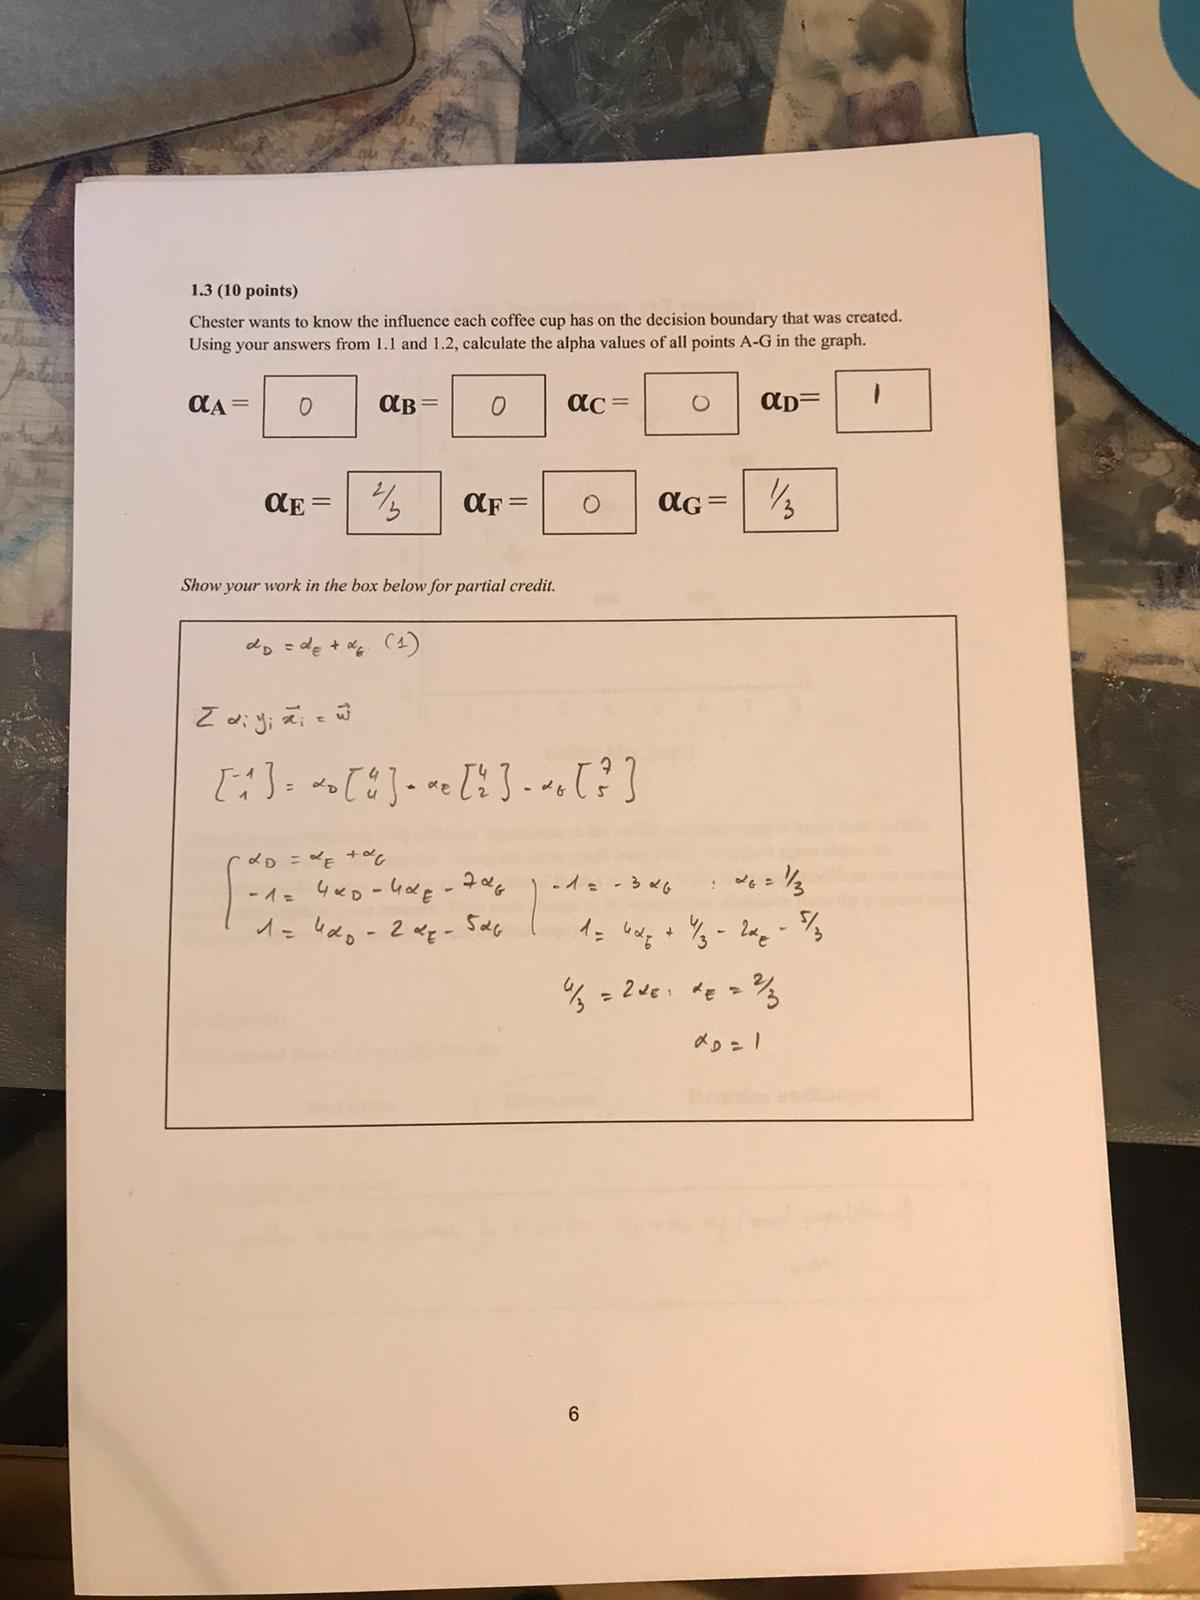 1.3 (10 points)
Chester wants to know the influence each coffee cup has on the decision boundary that was created.
Using your answers from 1.1 and 1.2, calculate the alpha values of all points A-G in the graph.
αA = 0 αB = 0 αC = 0 αD = 1
αE = 2/3 αF = 0 αG = 1/3
Show your work in the box below for partial credit.
α_D = α_E + α_G (1)
Σ α_i y_i x⃗_i = w⃗
[-1 1] = α_D [4 4] - α_E [4 2] - α_G [7 5]
α_D = α_E + α_G
-1 = 4α_D - 4α_E - 7α_G | -1 = -3α_G : α_G = 1/3
1 = 4α_D - 2α_E - 5α_G | 1 = 4α_E + 4/3 - 2α_E - 5/3
4/3 = 2α_E : α_E = 2/3
α_D = 1
6